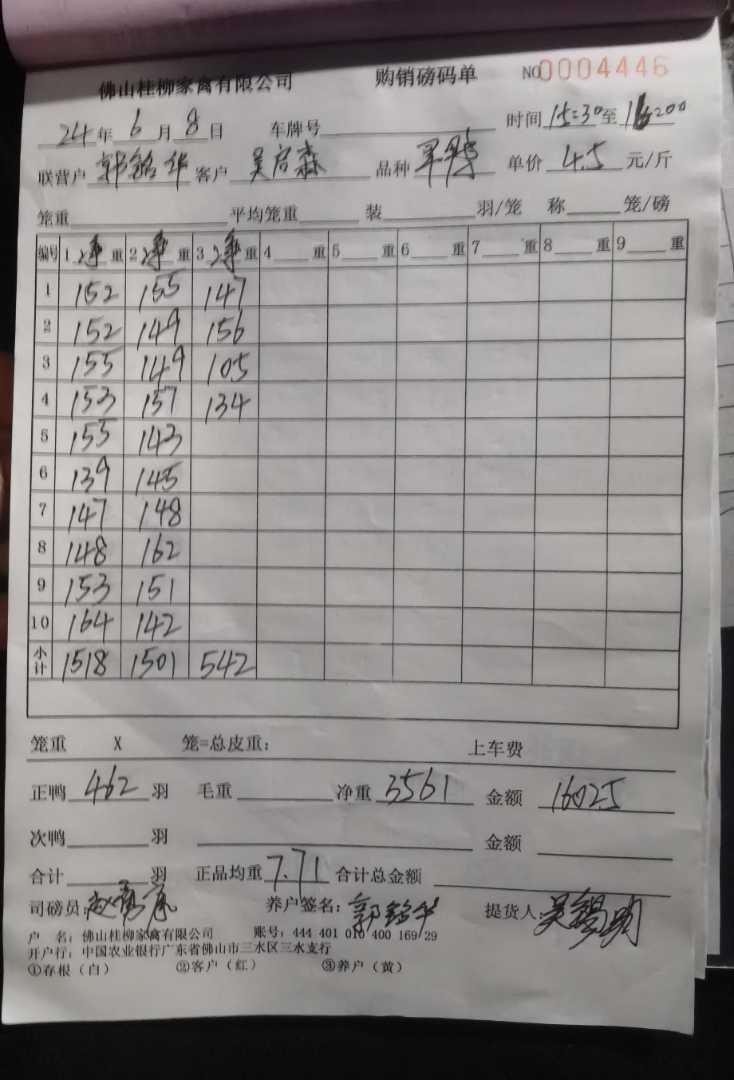 佛山桂柳家禽有限公司 购销磅码单 NO 0004446
24年6月8日 车牌号 时间15:30至16:00
联营户 郭铭华 客户 吴启森 品种 单价 4.5 元/斤
笼重 平均笼重 装 羽/笼 称 笼/磅
编号 1 净重 2 净重 3 净重 4 重 5 重 6 重 7 重 8 重 9 重
1 152 155 147
2 152 149 156
3 155 149 105
4 153 157 134
5 155 143
6 139 145
7 147 148
8 148 162
9 153 151
10 164 142
小计 1518 1501 542
笼重 X 笼=总皮重: 上车费
正鸭 462 羽 毛重 净重 3561 金额 16025
次鸭 羽 金额
合计 羽 正品均重 7.71 合计总金额
司磅员: 养户签名: 郭铭华 提货人:
户 名: 佛山桂柳家禽有限公司 账号: 444 401 010 400 169 29
开户行: 中国农业银行广东省佛山市三水区三水支行
①存根(白) ②客户(红) ③养户(黄)